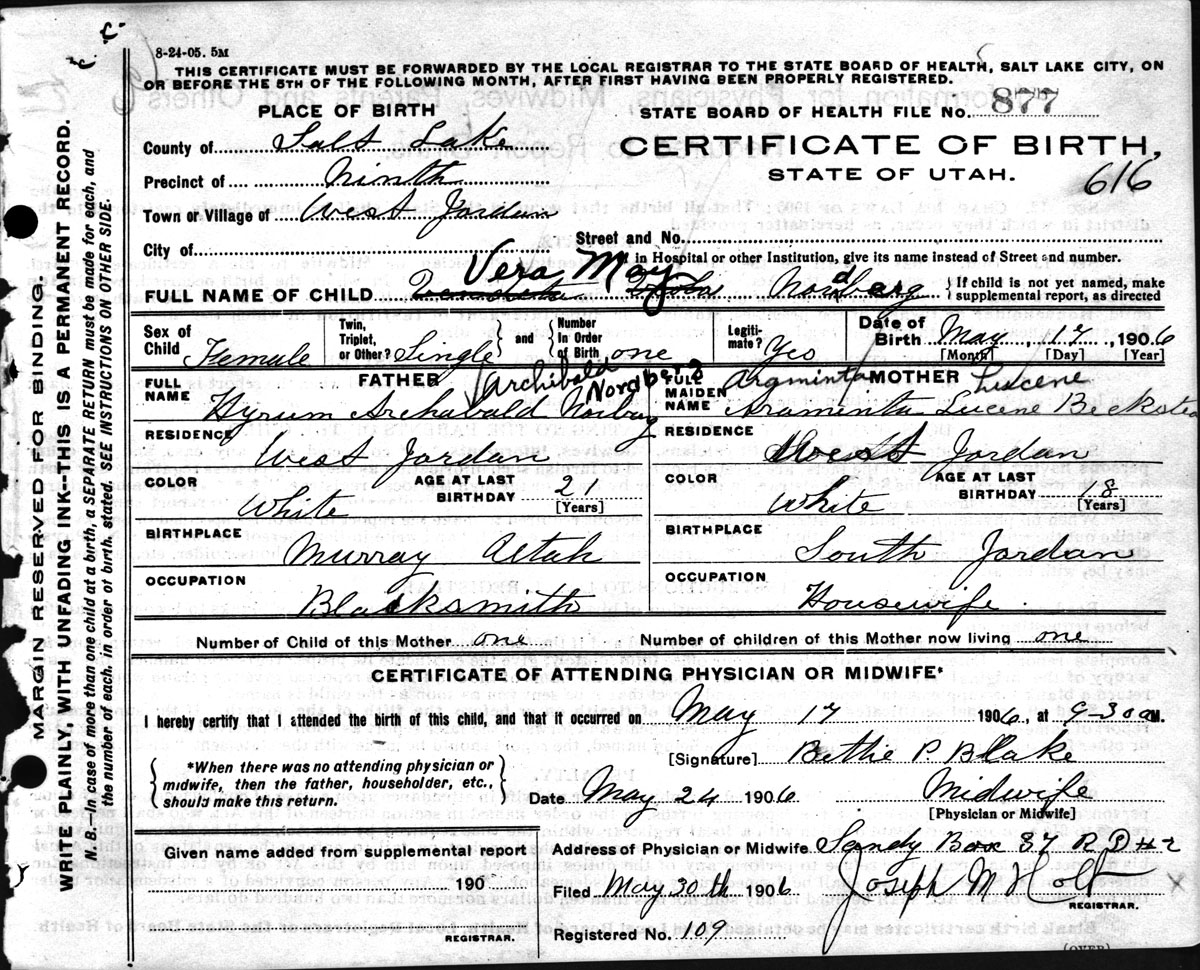 8-24-05. 5M
THIS CERTIFICATE MUST BE FORWARDED BY THE LOCAL REGISTRAR TO THE STATE BOARD OF HEALTH, SALT LAKE CITY, ON
OR BEFORE THE 5TH OF THE FOLLOWING MONTH, AFTER FIRST HAVING BEEN PROPERLY REGISTERED.
PLACE OF BIRTH
STATE BOARD OF HEALTH FILE No. 877
County of Salt Lake
CERTIFICATE OF BIRTH,
STATE OF UTAH.
616
Precinct of Ninth
Town or Village of West Jordan
City of
Street and No.
in Hospital or other Institution, give its name instead of Street and number.
Vera May
FULL NAME OF CHILD Nordberg
If child is not yet named, make
supplemental report, as directed
Sex of Child Female
Twin, Triplet, or Other? Single
and
Number In Order of Birth one
Legitimate? Yes
Date of Birth May 17, 1906
[Month] [Day] [Year]
FATHER
Archibald Nordberg
FULL NAME Hyrum Archabald
MOTHER
Argminta Lucene
FULL MAIDEN NAME Araminta Lucene Beckste
RESIDENCE West Jordan
RESIDENCE West Jordan
COLOR White
AGE AT LAST BIRTHDAY 21 [Years]
COLOR White
AGE AT LAST BIRTHDAY 18 [Years]
BIRTHPLACE Murray Utah
BIRTHPLACE South Jordan
OCCUPATION Blacksmith
OCCUPATION Housewife.
Number of Child of this Mother one
Number of children of this Mother now living one
CERTIFICATE OF ATTENDING PHYSICIAN OR MIDWIFE*
I hereby certify that I attended the birth of this child, and that it occurred on May 17 1906, at 9-30 a M.
*When there was no attending physician or
midwife, then the father, householder, etc.,
should make this return.
[Signature] Bethie P. Blake
Date May 24 1906
Midwife
[Physician or Midwife]
Given name added from supplemental report
190
REGISTRAR.
Address of Physician or Midwife Sandy Box 37 R D #2
Filed May 30th 1906 Joseph M Holt
REGISTRAR.
Registered No. 109
(OVER)
MARGIN RESERVED FOR BINDING.
WRITE PLAINLY, WITH UNFADING INK--THIS IS A PERMANENT RECORD.
N. B.--In case of more than one child at a birth, a SEPARATE RETURN must be made for each, and
the number of each, in order of birth, stated. SEE INSTRUCTIONS ON OTHER SIDE.